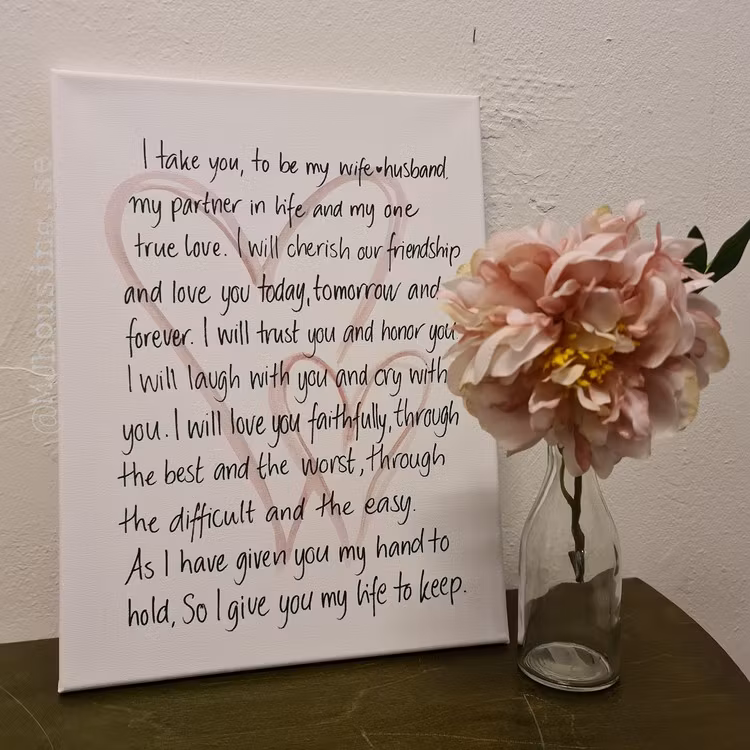 I take you, to be my wife♥husband.
my partner in life and my one
true love. I will cherish our friendship
and love you today, tomorrow and
forever. I will trust you and honor you
I will laugh with you and cry with
you. I will love you faithfully, through
the best and the worst, through
the difficult and the easy.
As I have given you my hand to
hold, So I give you my life to keep.
@Mjhousing.se